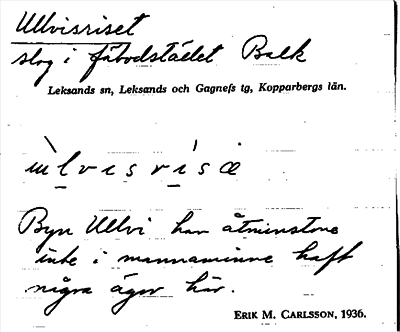 Ullvisriset
slog i fäbodstället Balk
Leksands sn, Leksands och Gagnefs tg, Kopparbergs län.
Byn Ullvi har åtminstone
inte i mannaminne haft
några ägor här.
ERIK M. CARLSSON, 1936.